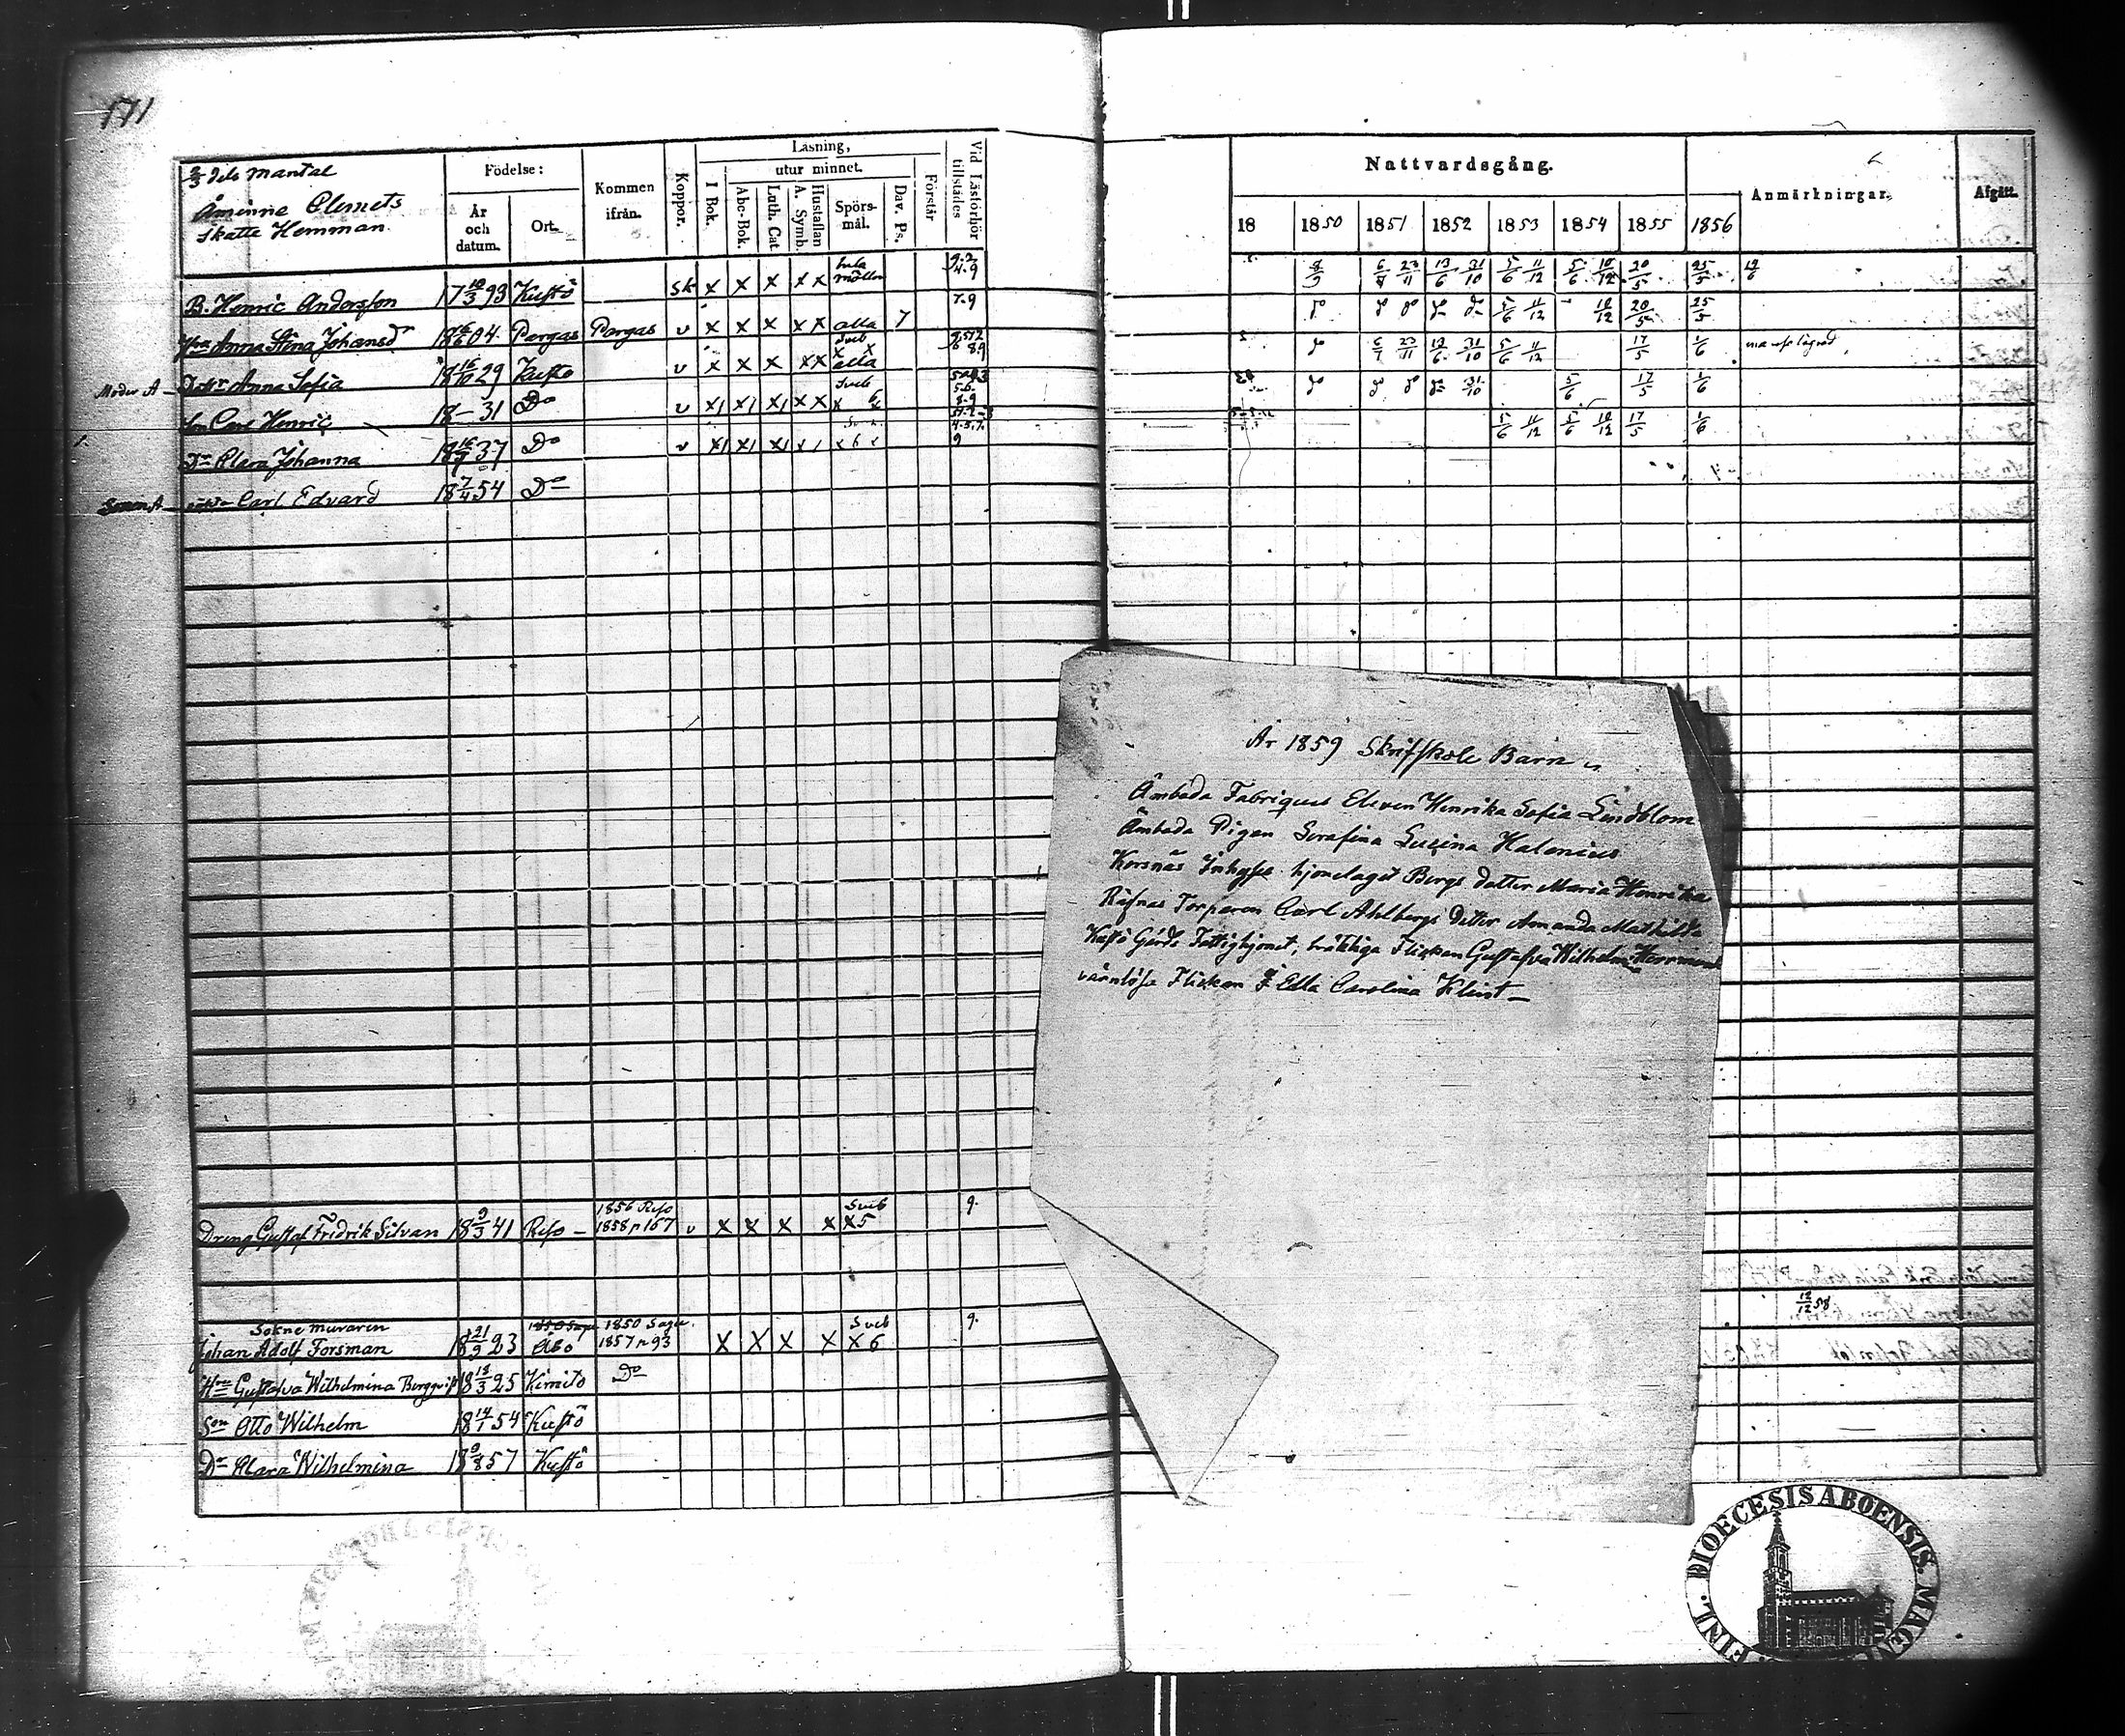 171
2/3 dels mantal
Åminne Clemets
Skatte Hemman.
Födelse:
År och datum.
Ort.
Kommen ifrån.
Koppor.
Läsning,
utur minnet.
I Bok.
Abc-Bok.
Luth. Cat.
A. Symb.
Hustaflan
Spörsmål.
Dav. Ps.
Förstår
Vid Läsförhör tillstådes
B. Henric Andersson 17 10/3 93 Kustö sk x x x x x
Hru Anna Stina Johansdr 18 16/6 04. Pargas Pargas v x x x x x alla 7 7.9
Moder A — Dottr Anna Sofia 18 16/10 29 Kustö v x x x x x alla
Son Carl Henric 18 — 31 Do v x x x x x
Dr Clara Johanna 18 16/9 37 Do v x x x x 6
Sonen A — Carl Edvard 18 7/4 54 Do
Dreng Gustaf Fridrik Silvan 18 9/3 41 Reso — 1856 Reso 1858 p 167 v x x x x x 5 Sveb 9.
Sokne muraren
Johan Adolf Forsman 18 21/9 23 Åbo 1850 Sagu. 1857 p 93 X X X X X 6 Sveb 9.
Hru Gustafva Wilhelmina Bergqvist 18 18/3 25 Kimito Do
Son Otto Wilhelm 18 14/1 54 Kustö
Dr Clara Wilhelmina 18 9/8 57 Kustö
Nattvardsgång.
Anmärkningar.
Afgått.
18 1850 1851 1852 1853 1854 1855 1856
6/7 23/11 13/6 31/10 5/6 11/12 5/6 10/12 20/5 25/5
5/6 11/12 10/12 20/5 25/5
6/7 23/11 13/6 31/10 5/6 11/12 17/5 1/6
31/10 5/6 17/5 1/6
5/6 11/12 5/6 10/12 17/5 1/6
12/12 58
År 1859 Skriftskole Barn
Åmbada Fabriques Eleven Henrika Sofia Lindblom
Åmbada Pigan Serafina Lucina Halenius
Korsnäs Inhyses hjonelaget Bergs dotter Maria Henrika
Räfnas Torparen Carl Ahlbergs dotter Amanda Mathilda
Kustö Gårds Fattighjonet, bräckliga Flickan Gustafva Wilhelmina
värnlösa Flickan Edla Carolina Klint —
FINL. DIOECESIS ABOENSIS. MAGNI